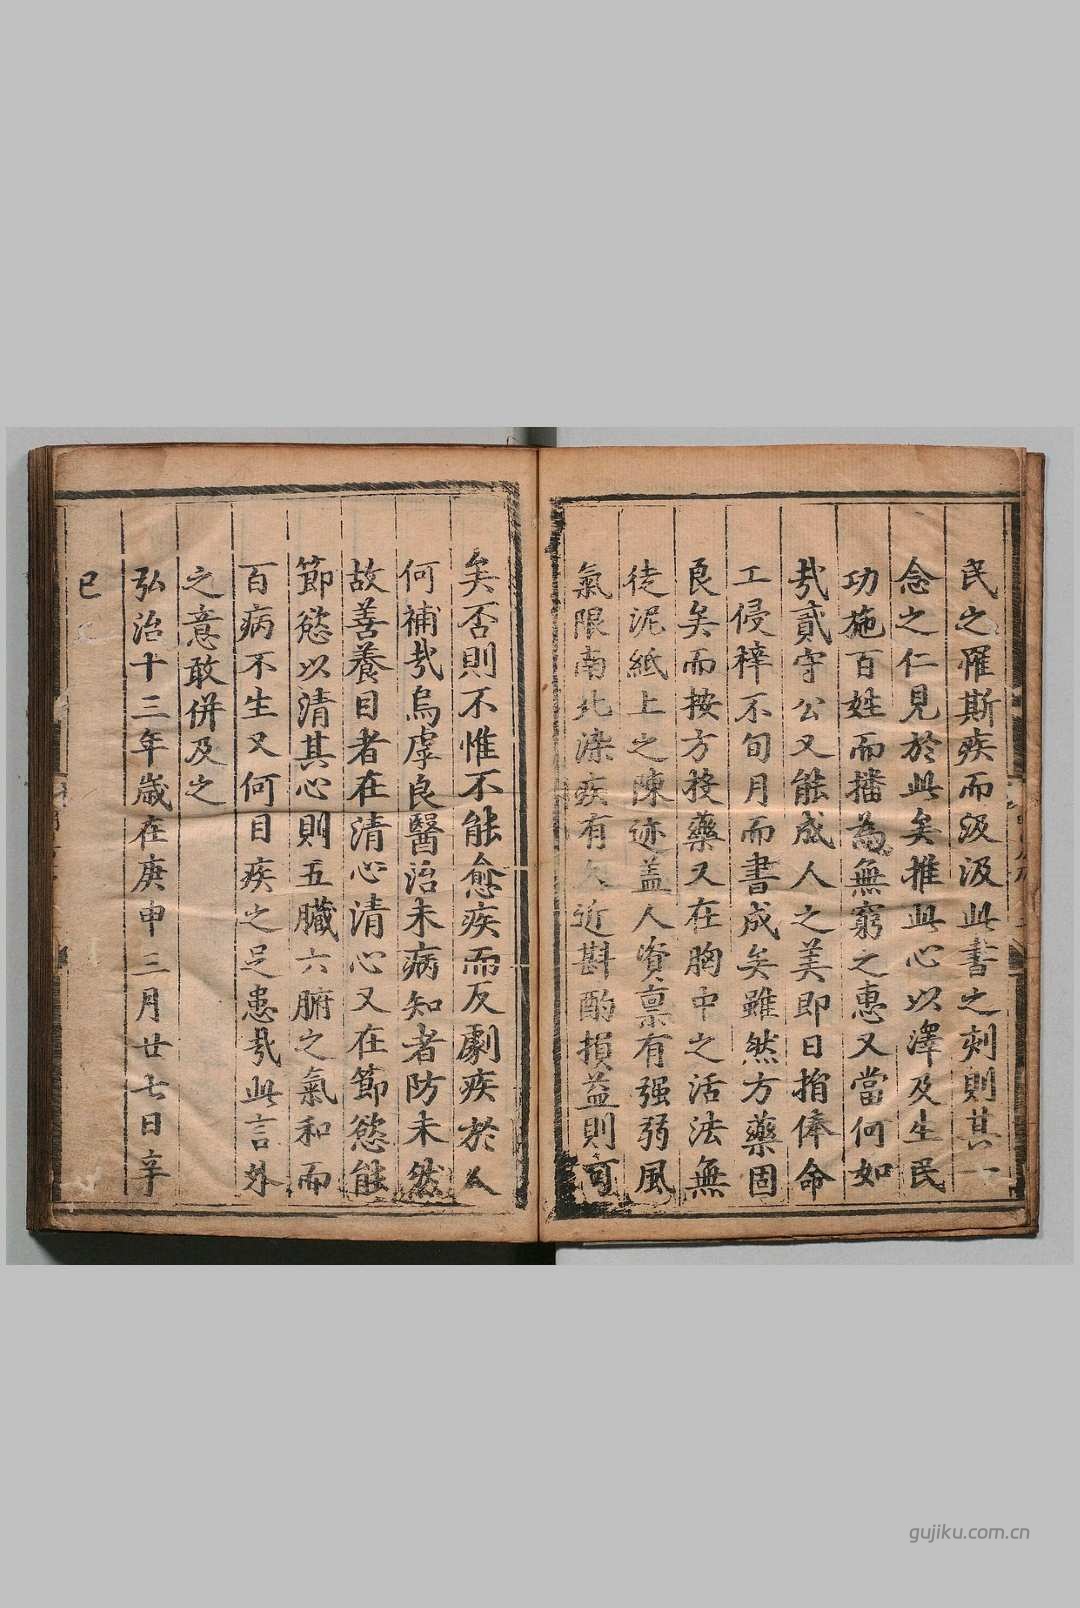 民之罹斯疾而汲汲此書之刻則其一
念之仁見於此矣推此心以澤及生民
功施百姓而播為無窮之惠又當何如
㢤貳守公又能成人之美即日捐俸命
工侵梓不旬月而書成矣雖然方藥固
良矣而按方投藥又在胸中之活法無
徒泥紙上之陳迹盖人資稟有强弱風
氣限南北染疾有久近斟酌損益則可
矣否則不惟不能愈疾而反劇疾於人
何補㢤烏虖良醫治未病知者防未然
故善養目者在清心清心又在節慾能
節慾以清其心則五臟六腑之氣和而
百病不生又何目疾之足患㢤此言外
之意敢併及之
弘治十三年歲在庚申三月廿七日辛
巳
gujiku.com.cn